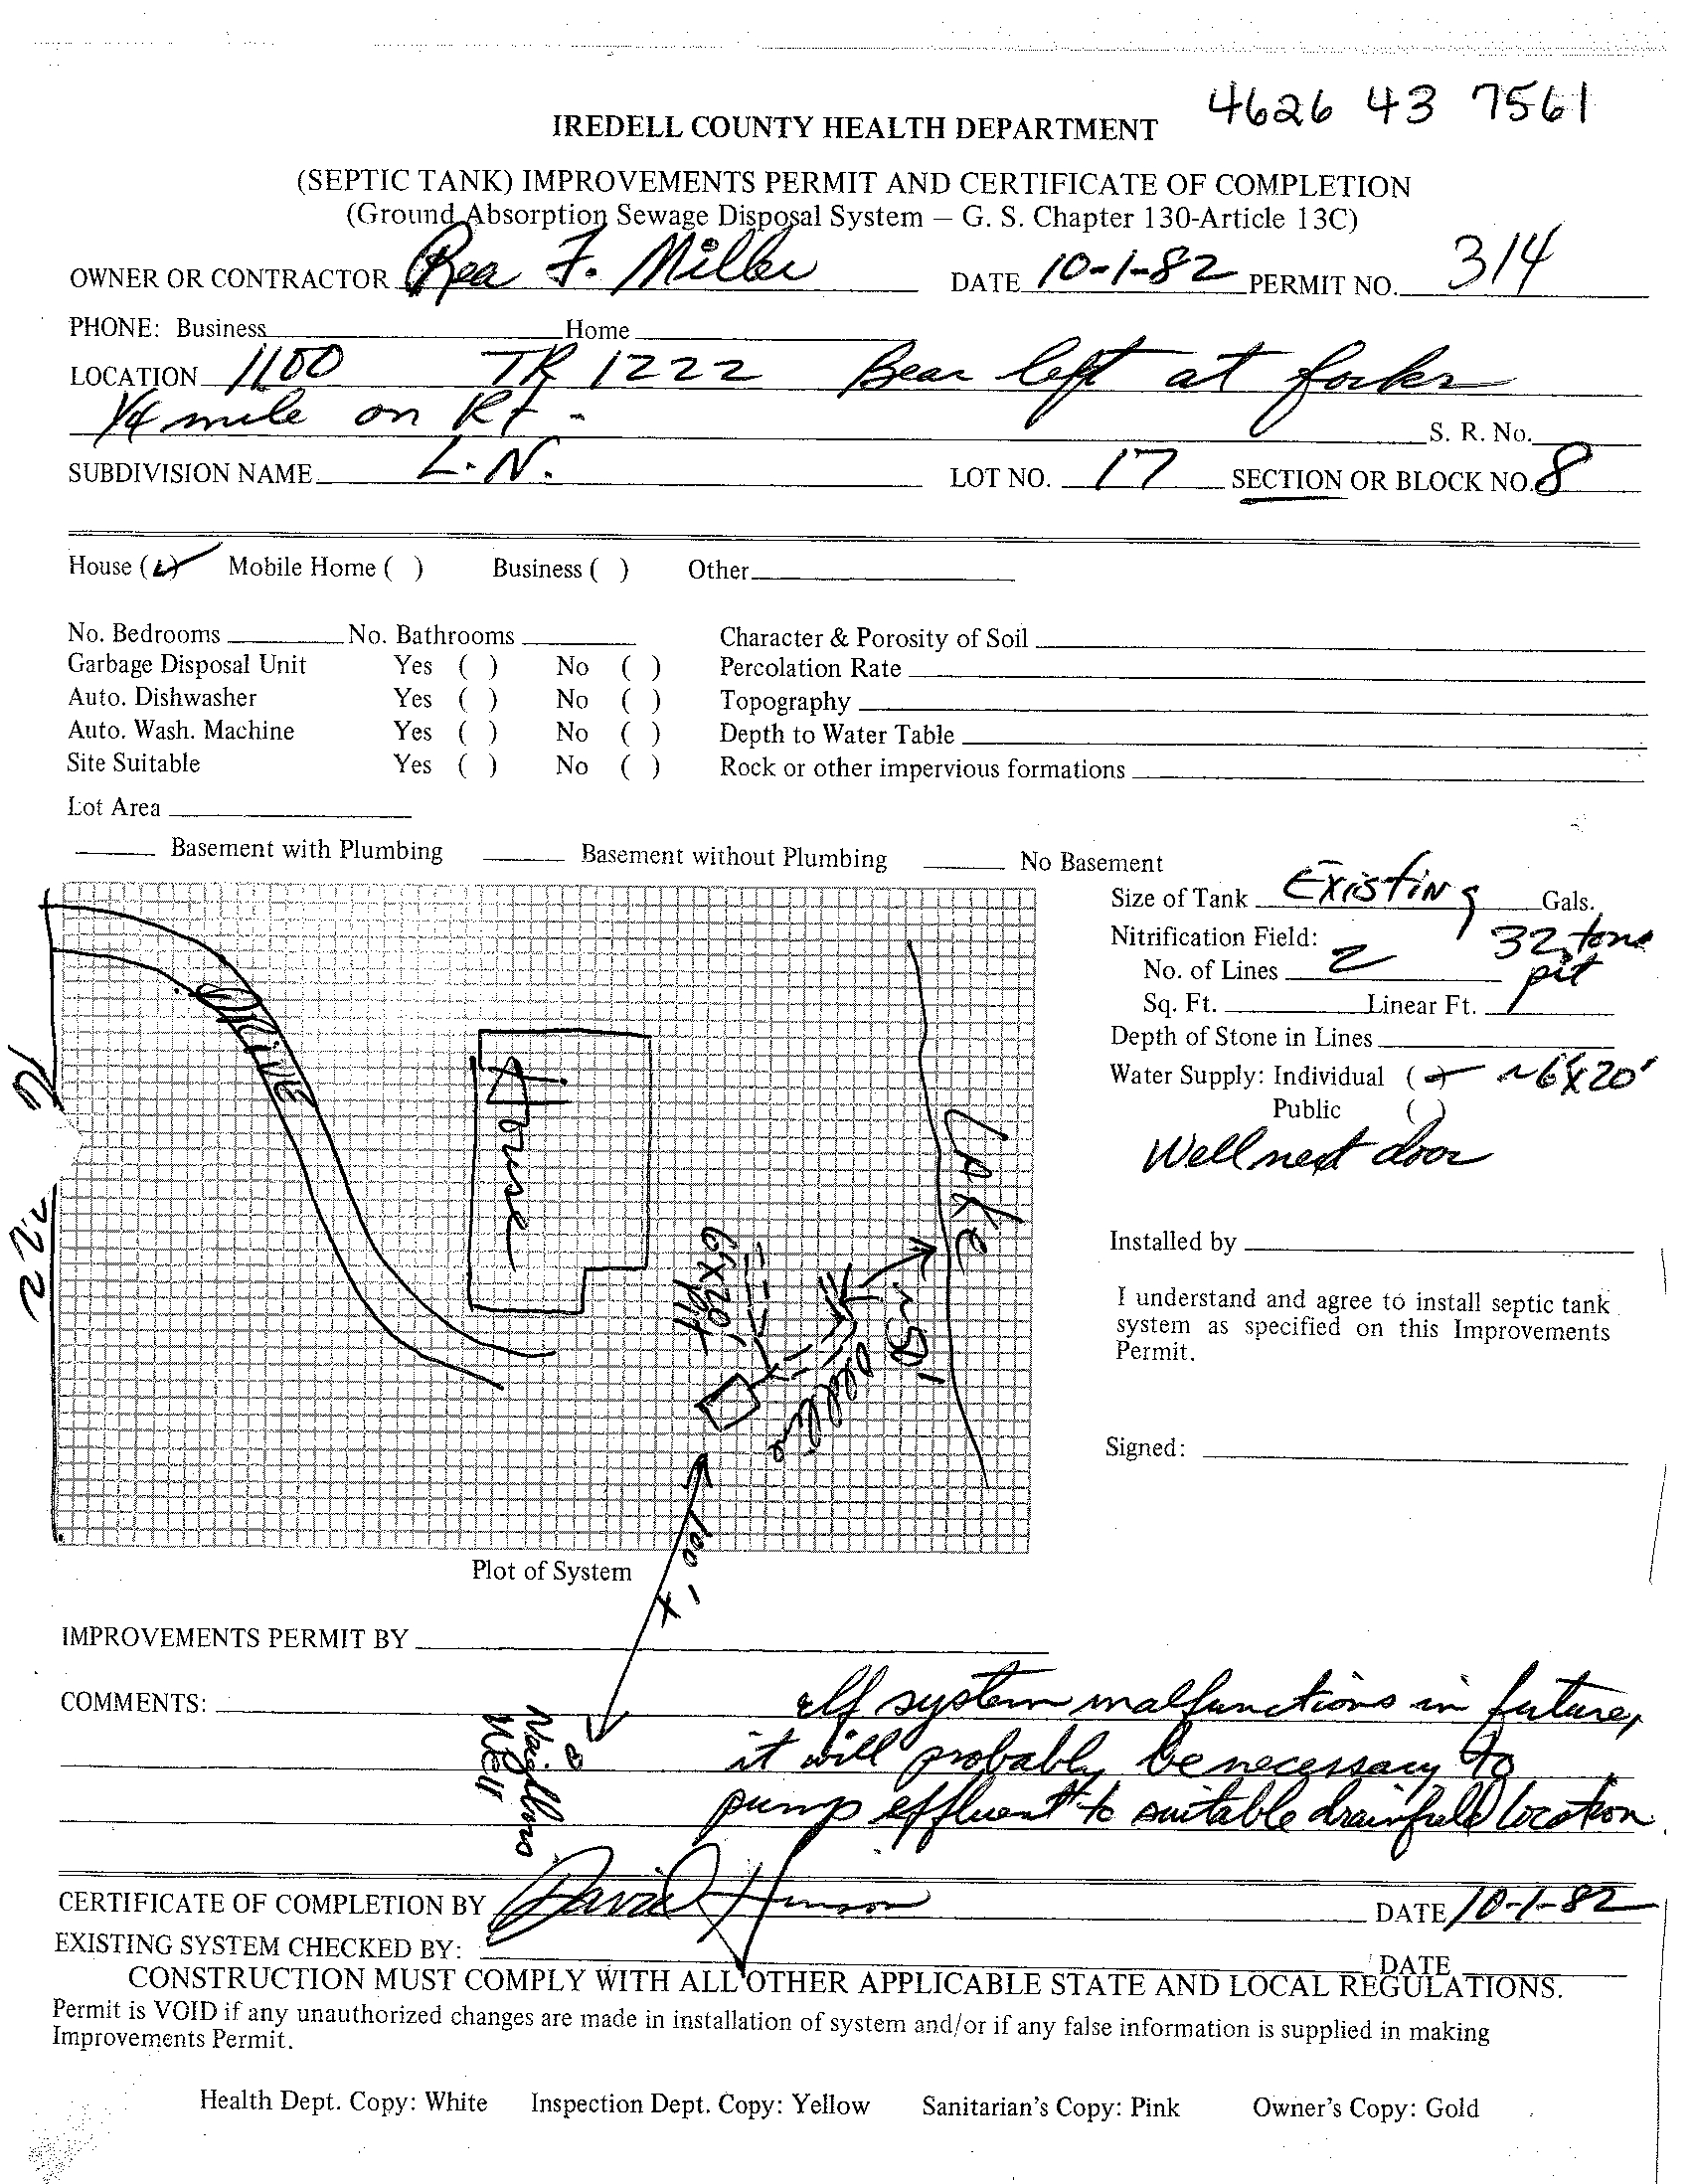 4626 43 7561
IREDELL COUNTY HEALTH DEPARTMENT
(SEPTIC TANK) IMPROVEMENTS PERMIT AND CERTIFICATE OF COMPLETION
(Ground Absorption Sewage Disposal System — G. S. Chapter 130-Article 13C)
OWNER OR CONTRACTOR Rea F. Miller DATE 10-1-82 PERMIT NO. 314
PHONE: Business Home
LOCATION 1100 TR 1222 Bear left at forks
1/4 mile on Rt - S. R. No.
SUBDIVISION NAME L.N. LOT NO. 17 SECTION OR BLOCK NO. 8
House (✓) Mobile Home ( ) Business ( ) Other
No. Bedrooms No. Bathrooms Character & Porosity of Soil
Garbage Disposal Unit Yes ( ) No ( ) Percolation Rate
Auto. Dishwasher Yes ( ) No ( ) Topography
Auto. Wash. Machine Yes ( ) No ( ) Depth to Water Table
Site Suitable Yes ( ) No ( ) Rock or other impervious formations
Lot Area
Basement with Plumbing Basement without Plumbing No Basement
Size of Tank Existing Gals.
Nitrification Field: 32 tons
No. of Lines 2 pit
Sq. Ft. Linear Ft.
Depth of Stone in Lines
Water Supply: Individual ( ) ~6x20'
Public ( )
Well next door
Installed by
I understand and agree to install septic tank
system as specified on this Improvements
Permit.
Signed:
DRIVE
House
Lake
6x20'
pit
~50'
old line
100'
Plot of System
IMPROVEMENTS PERMIT BY
COMMENTS: If system malfunctions in future,
it will probably be necessary to
pump effluent to suitable drainfield location
Neighbors
Well
CERTIFICATE OF COMPLETION BY David Hinson DATE 10-1-82
EXISTING SYSTEM CHECKED BY: DATE
CONSTRUCTION MUST COMPLY WITH ALL OTHER APPLICABLE STATE AND LOCAL REGULATIONS.
Permit is VOID if any unauthorized changes are made in installation of system and/or if any false information is supplied in making
Improvements Permit.
Health Dept. Copy: White Inspection Dept. Copy: Yellow Sanitarian's Copy: Pink Owner's Copy: Gold